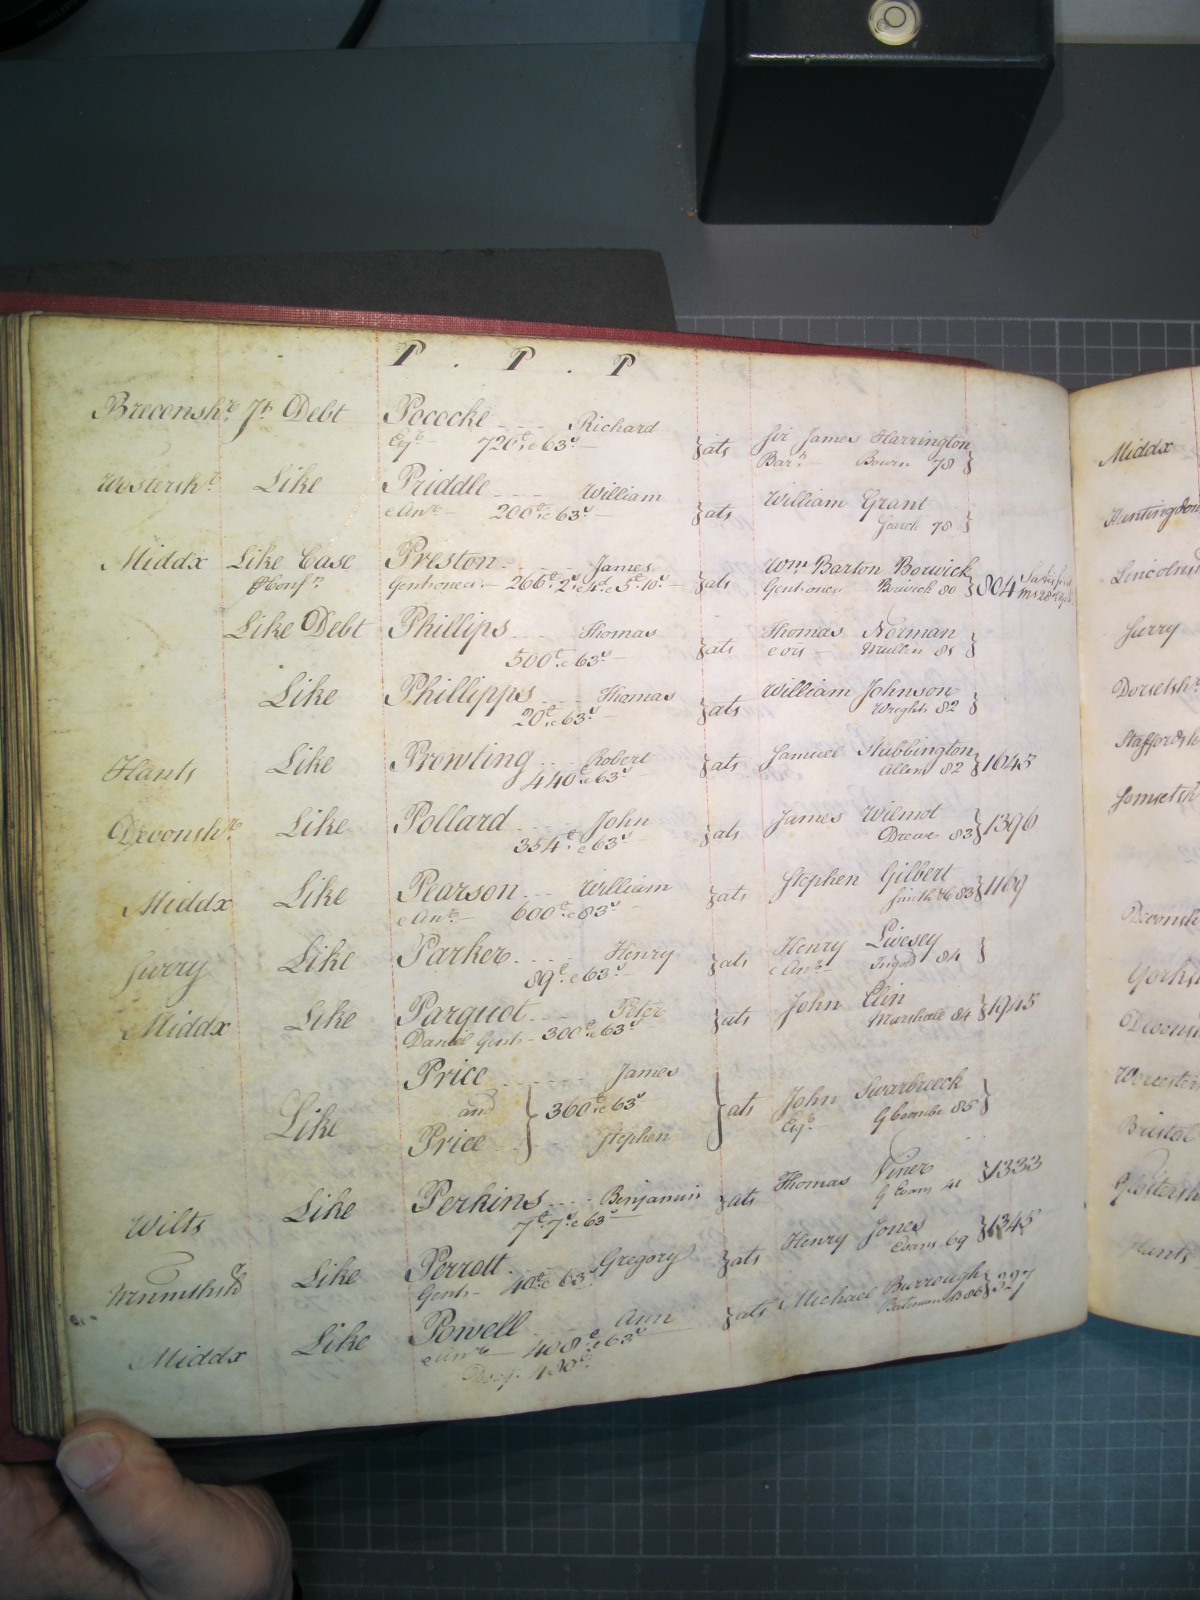 P . P . P
Breconsh:re Jt Debt Pococke Richard
Esq:r 720£ & 63s } ats Sir James Harrington
Bar:t Bourn 78 }
Westersh:e Like Priddle William
& An:r 200£ & 63s } ats William Grant
78 }
Middx Like Case Preston James
Gentioner 266£ 2s 4d & 5£ 10s } ats Wm Barton Borwick
Gentioner Borwick 80 } 804
Like Debt Phillips Thomas
500£ & 63s } ats Thomas Norman
& ors Mullin 81 }
Like Phillipps Thomas
20£ & 63s } ats William Johnson
Wright 82 }
Hants Like Prowting Robert
440£ & 63s } ats Samuel Stubbington
Allen 82 } 1645
Devonsh:re Like Pollard John
354£ & 63s } ats James Wilmot
Drewe 83 } 1396
Middx Like Pearson William
& An:r 600£ & 83s } ats Stephen Gilbert
Smith 83 } 1169
Surry Like Parker Henry
89£ & 63s } ats Henry Livesey
& An:r 84 }
Middx Like Parquot Peter
Daniel Gent 300£ & 63s } ats John Elin
Marshall 84 } 1945
Price James
and } 360£ & 63s } ats John Swarbreck
Like Price Stephen
Esq:r 85 }
Wilts Like Perkins Benjamin
7£ 7s & 63s } ats Thomas Viner
G Evans 41 } 1333
Like Perrott Gregory
Gent 40£ & 63s } ats Henry Jones
Evans 69 } 1345
Middx Like Powell Ann
& An:r 408£ & 63s } ats Michael Burrough
Bateman 86 } 327
480£
Middx
Huntingdon
Lincolns
Surry
Dorsetsh:r
Staffordsh
Somsetsh
Devonsh
Yorksh
Devonsh
Worcester
Bristol
Hants